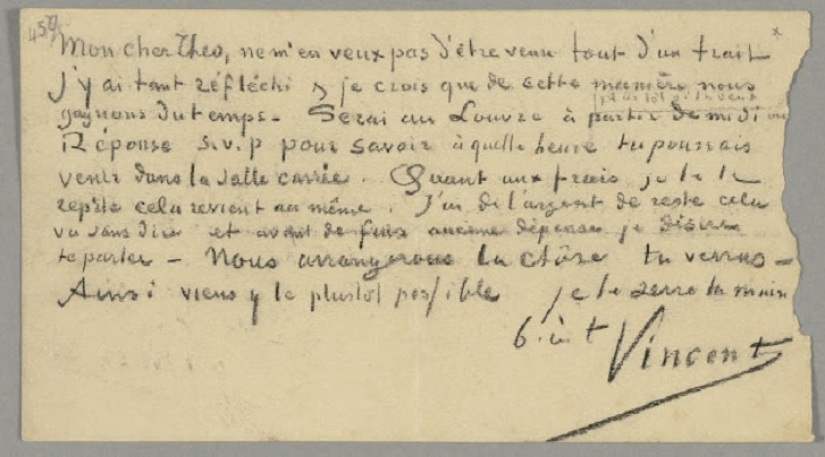 459
x
Mon cher Theo, ne m'en veux pas d'être venu tout d'un trait
J'y ai tant réfléchi & je crois que de cette manière nous
plus tôt si tu veux
gagnons du temps - Serai au Louvre à partir de midi ou
Réponse s.v.p pour savoir à quelle heure tu pourrais
venir dans la salle carrée. Quant aux frais je te le
repète cela revient au même. J'ai de l'argent de reste cela
va sans dire et avant de faire aucune dépense je désire
te parler - Nous arrangerons la chose tu verras -
Ainsi viens y le plustot possible je te serre la main
b. à t Vincent